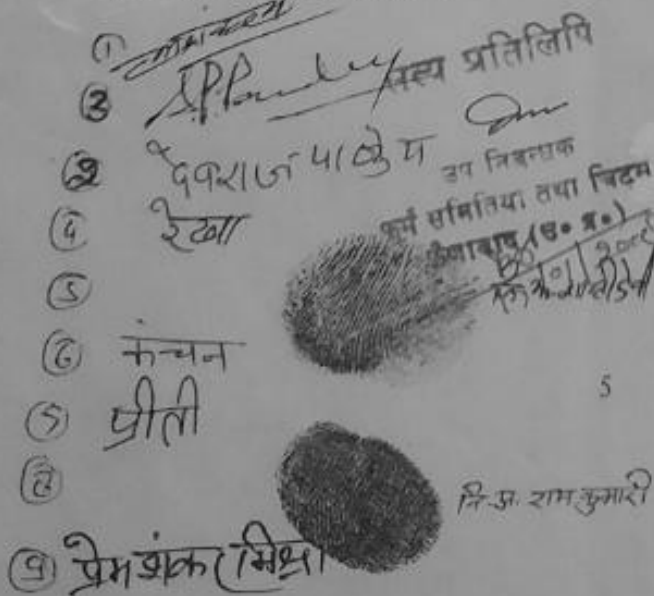 ①
③ S.P. Pandey सत्य प्रतिलिपि
② देवराज पाण्डेय
उप निबन्धक
④ रेखा
फर्म समितियां तथा चिट्स
फैजाबाद (उ० प्र०)
⑤
⑥ कंचन
5
⑦ प्रीती
⑧ नि.अ. राम कुमारी
⑨ प्रेम शंकर मिश्रा